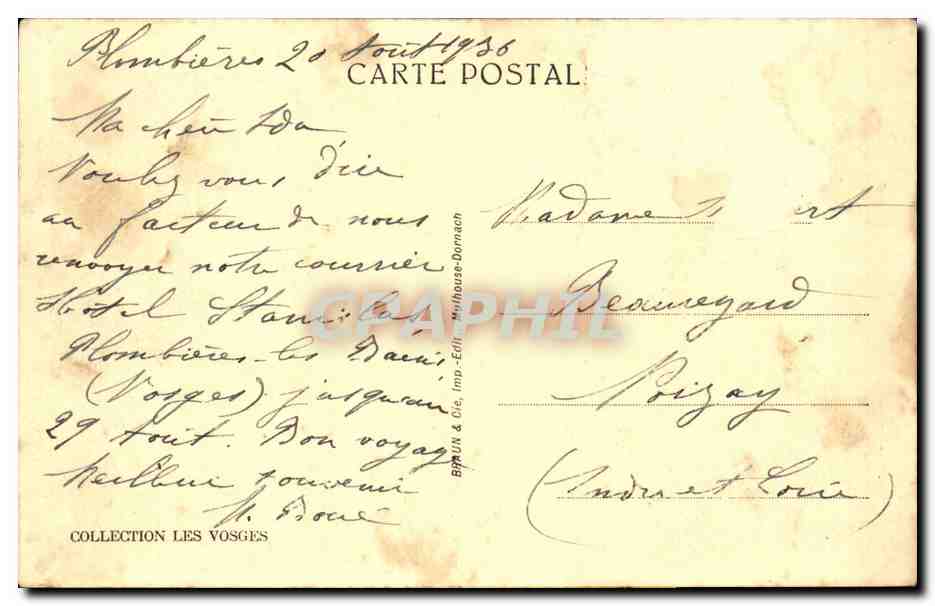 Plombières 20 Août 1936
CARTE POSTAL
Ma chère Ida
Voulez vous dire
au facteur de nous
renvoyer notre courrier
Hôtel Stanislas
Plombières-les Bains
(Vosges) jusqu'au
29 Août. Bon voyage
Meilleur souvenir
COLLECTION LES VOSGES
BRAUN & Cie, Imp.-Edit. Mulhouse-Dornach
Madame
Beauregard
Noizay
(Indre et Loire)
CPAPHIL